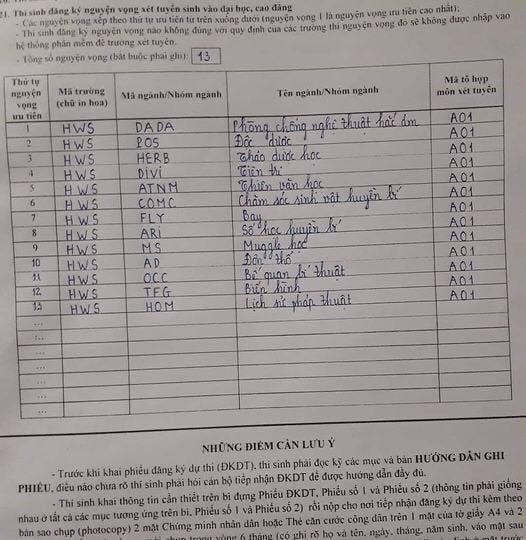 21. Thí sinh đăng ký nguyện vọng xét tuyển sinh vào đại học, cao đẳng
- Các nguyện vọng xếp theo thứ tự ưu tiên từ trên xuống dưới (nguyện vọng 1 là nguyện vọng ưu tiên cao nhất);
- Thí sinh đăng ký nguyện vọng nào không đúng với quy định của các trường thì nguyện vọng đó sẽ không được nhập vào
hệ thống phần mềm để trường xét tuyển.
- Tổng số nguyện vọng (bắt buộc phải ghi): 13
Thứ tự nguyện vọng ưu tiên Mã trường (chữ in hoa) Mã ngành/Nhóm ngành Tên ngành/Nhóm ngành Mã tổ hợp môn xét tuyển
1 HWS DADA Phòng chống nghệ thuật hắc ám A01
2 HWS POS Độc dược A01
3 HWS HERB Thảo dược học A01
4 HWS DIVI Tiên tri A01
5 HWS ATNM Thiên văn học A01
6 HWS COMC Chăm sóc sinh vật huyền bí A01
7 HWS FLY Bay A01
8 HWS ARI Số học huyền bí A01
9 HWS MS Muggle học A01
10 HWS AD Độn thổ A01
11 HWS OCC Bế quan bí thuật A01
12 HWS TFG Biến hình A01
13 HWS HOM Lịch sử pháp thuật A01
...
...
...
...
...
...
...
NHỮNG ĐIỂM CẦN LƯU Ý
- Trước khi khai phiếu đăng ký dự thi (ĐKDT), thí sinh phải đọc kỹ các mục và bản HƯỚNG DẪN GHI
PHIẾU, điều nào chưa rõ thí sinh phải hỏi cán bộ tiếp nhận ĐKDT để được hướng dẫn đầy đủ.
- Thí sinh khai thông tin cần thiết trên bì đựng Phiếu ĐKDT, Phiếu số 1 và Phiếu số 2 (thông tin phải giống
nhau ở tất cả các mục tương ứng trên bì, Phiếu số 1 và Phiếu số 2) rồi nộp cho nơi tiếp nhận đăng ký dự thi kèm theo
bản sao chụp (photocopy) 2 mặt Chứng minh nhân dân hoặc Thẻ căn cước công dân trên 1 mặt của tờ giấy A4 và 2
trong vòng 6 tháng (có ghi rõ họ và tên, ngày, tháng, năm sinh, vào mặt sau